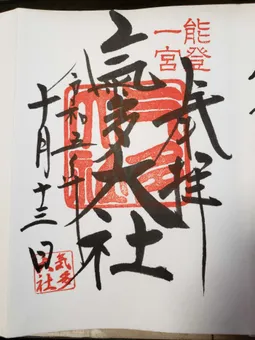 能登
一宮
奉拝
氣多大社
令和五年
十月十三日
気多
大社